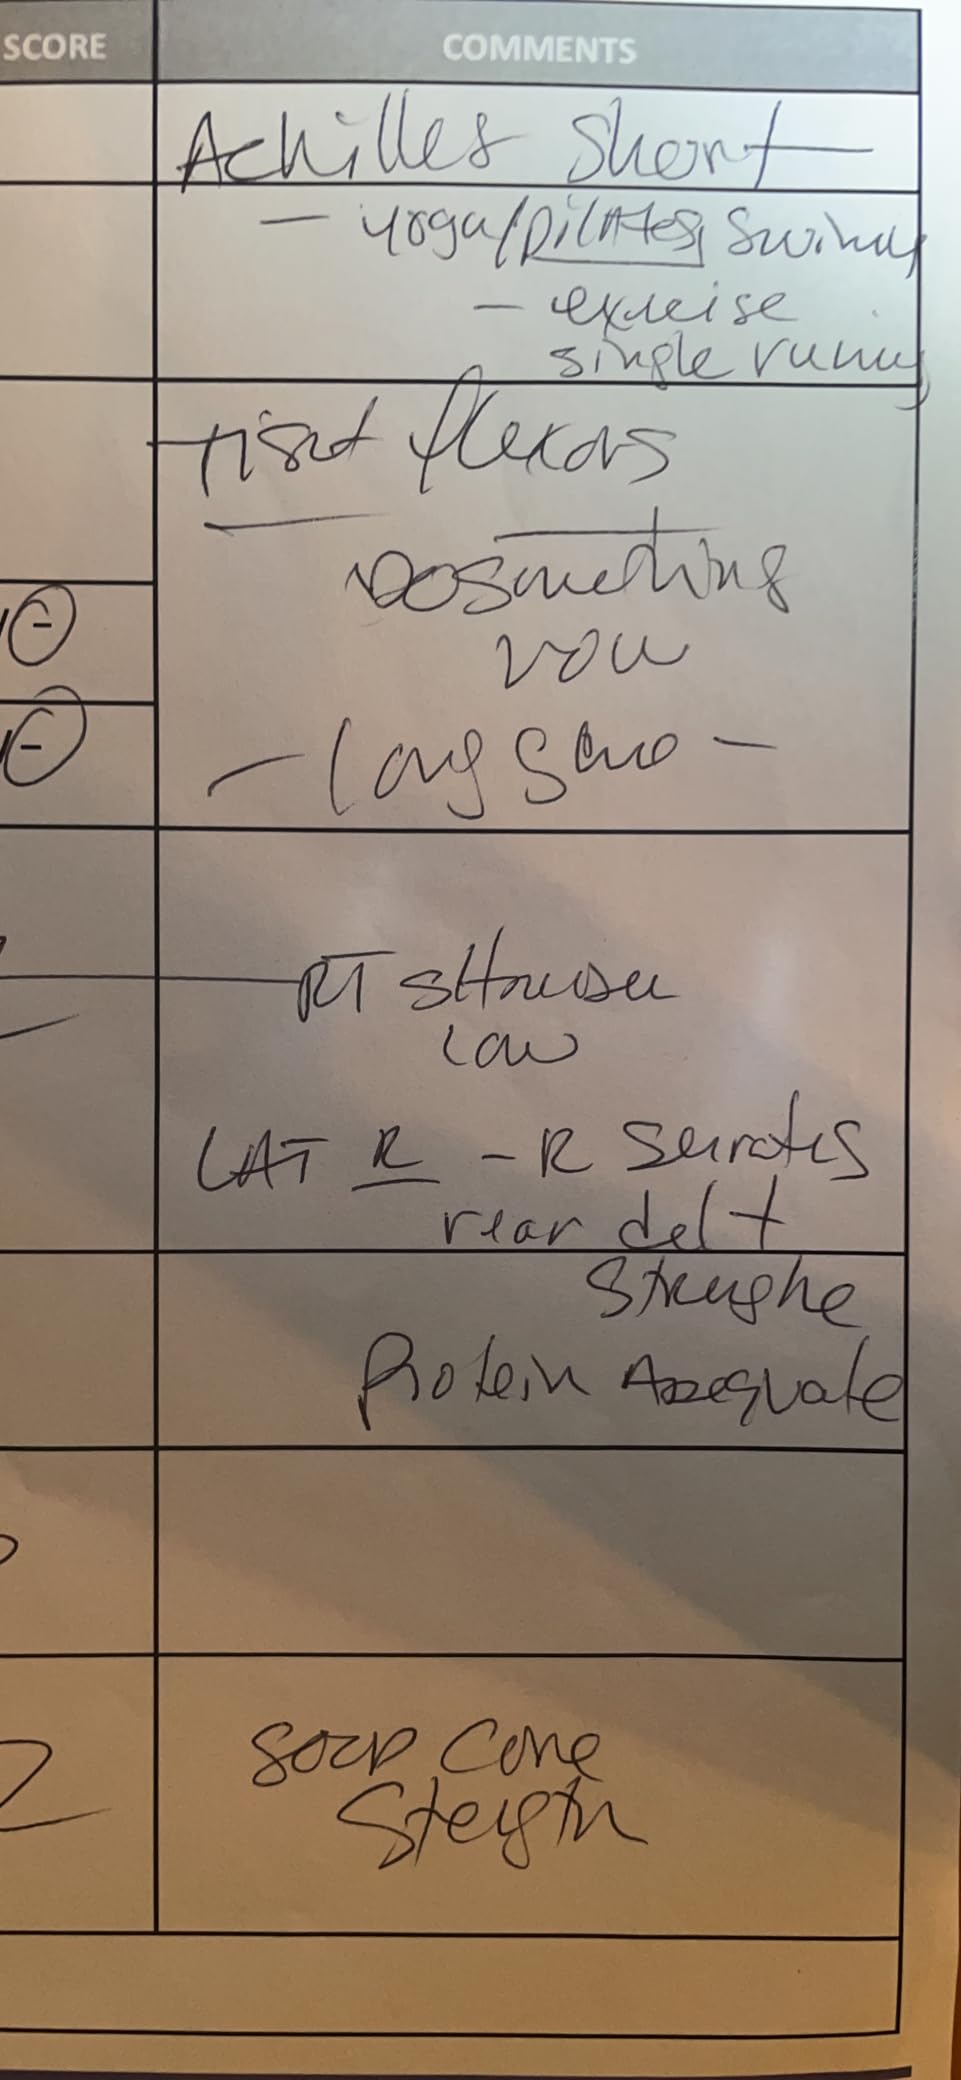 SCORE COMMENTS
Achilles Short
- yoga/pilates, swimming
- exercise
single running
tight flexors
Do something
you
- long
RT SHoulder
Low
LAT R - R Serratus
rear delt
Protein Adequate
Good Core
Strength
2